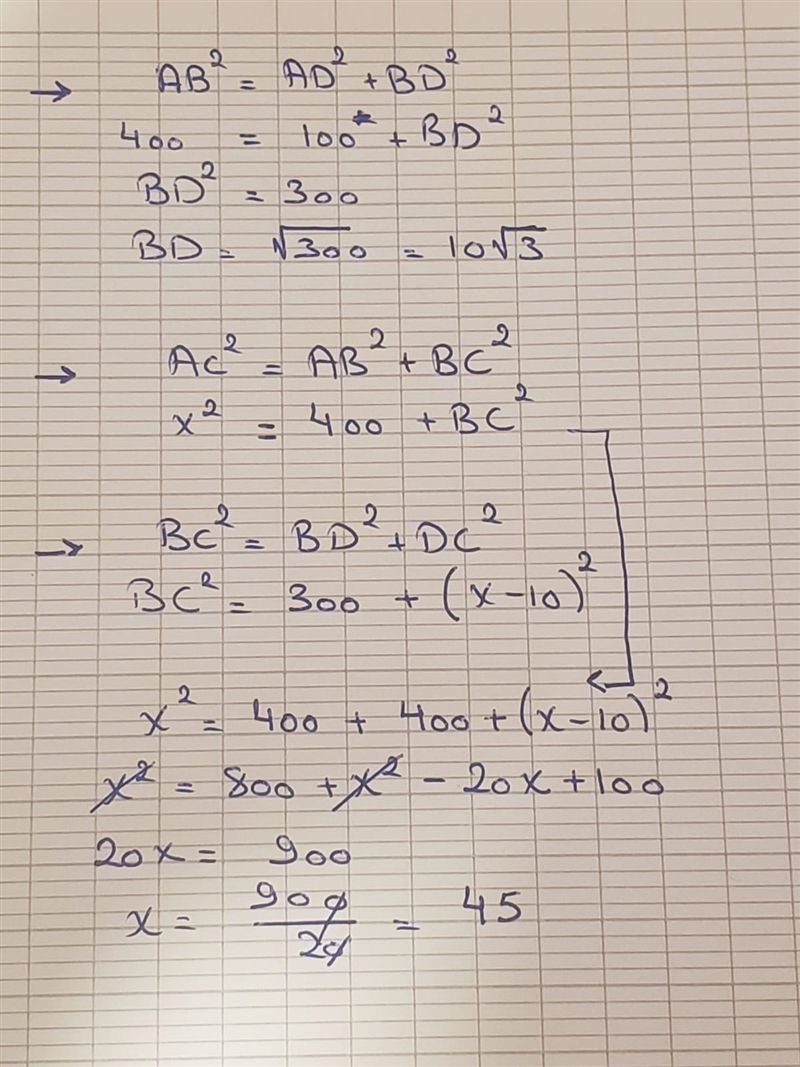 → AB² = AD² + BD²
400 = 100 + BD²
BD² = 300
BD = √300 = 10√3
→ AC² = AB² + BC²
x² = 400 + BC²
→ BC² = BD² + DC²
BC² = 300 + (x-10)²
x² = 400 + 400 + (x-10)²
x² = 800 + x² - 20x + 100
20x = 900
x = 900/20 = 45